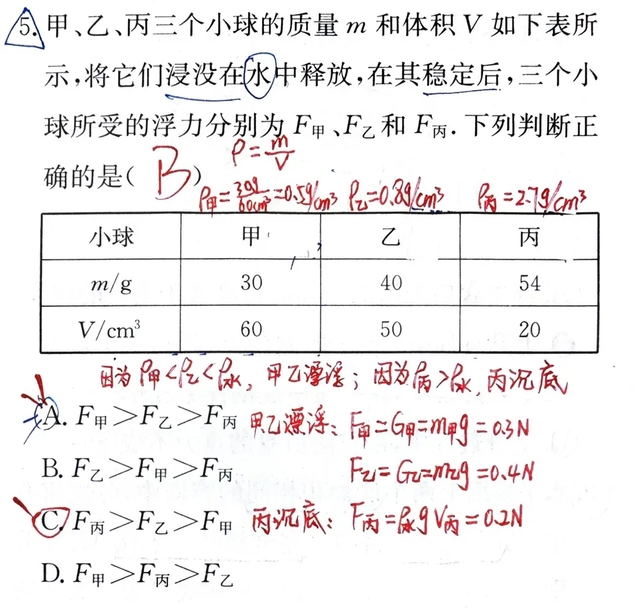 5. 甲、乙、丙三个小球的质量 m 和体积 V 如下表所
示,将它们浸没在水中释放,在其稳定后,三个小
球所受的浮力分别为 F甲、F乙和 F丙. 下列判断正
ρ=m/V
确的是( B )
ρ甲=30g/60cm³=0.5g/cm³ ρ乙=0.8g/cm³ ρ丙=2.7g/cm³
小球 甲 乙 丙
m/g 30 40 54
V/cm³ 60 50 20
因为ρ甲<ρ乙<ρ水, 甲乙漂浮; 因为ρ丙>ρ水, 丙沉底
A. F甲>F乙>F丙 甲乙漂浮: F甲=G甲=m甲g=0.3N
B. F乙>F甲>F丙 F乙=G乙=m乙g=0.4N
C. F丙>F乙>F甲 丙沉底: F丙=ρ水gV丙=0.2N
D. F甲>F丙>F乙